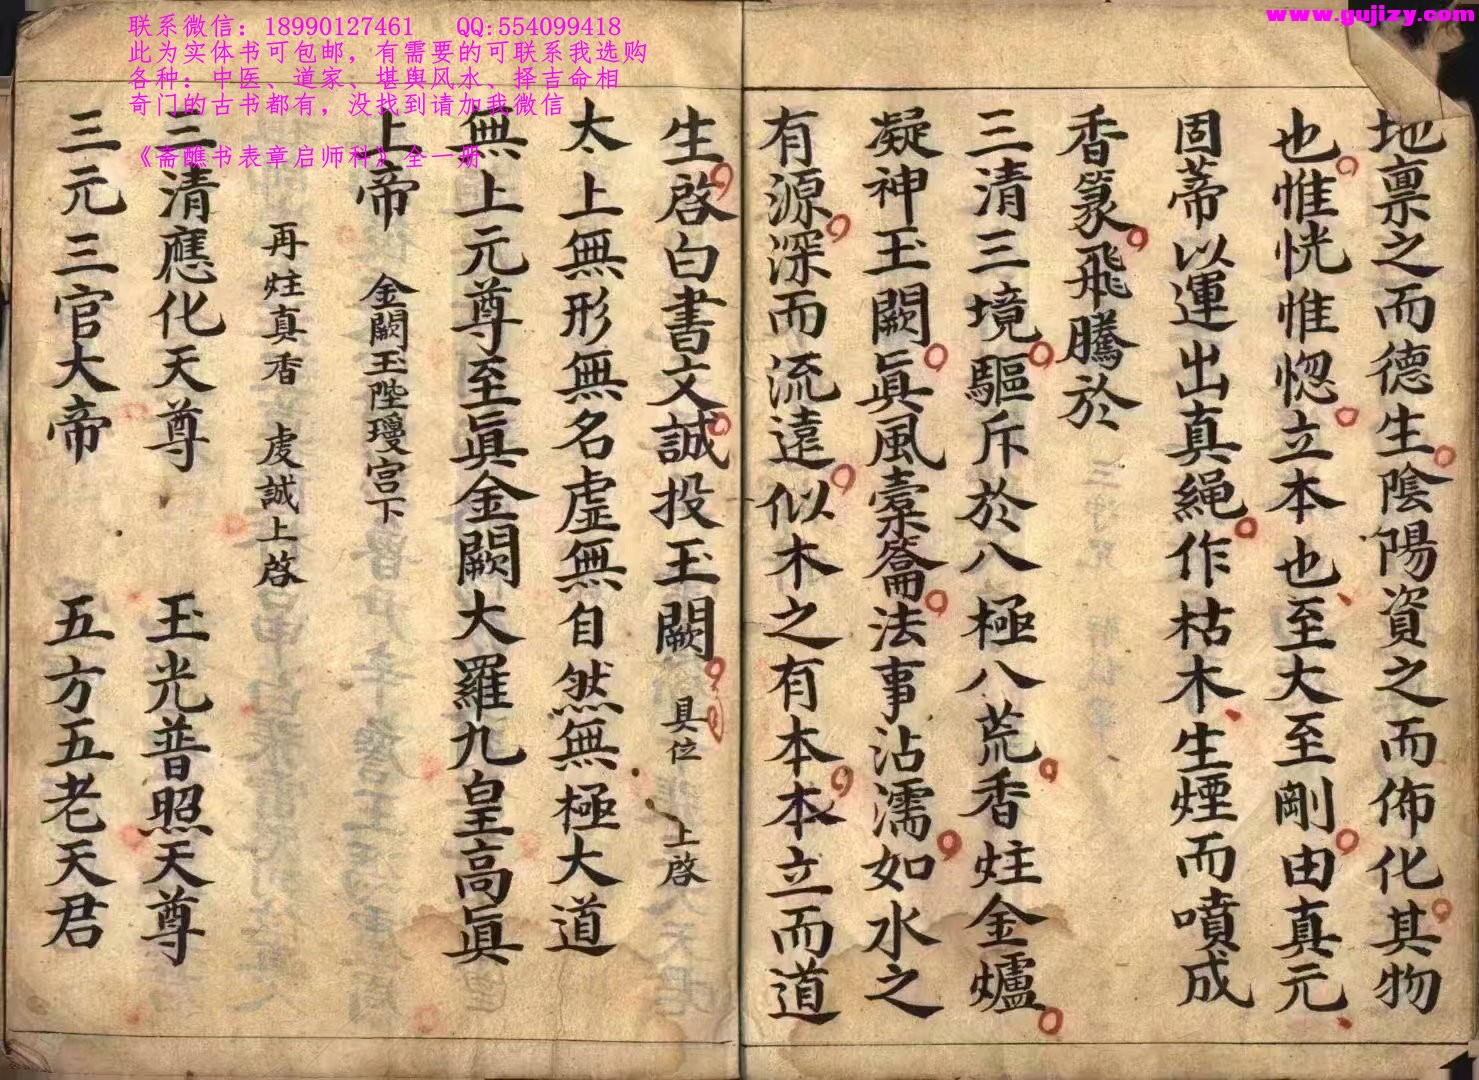 联系微信：18990127461 QQ:554099418
此为实体书可包邮，有需要的可联系我选购
各种：中医、道家、堪舆风水、择吉命相
奇门的古书都有，没找到请加我微信
《斋醮书表章启师科》全一册
www.gujizy.com
地禀之而德生陰陽資之而佈化其物
也惟恍惟惚立本也至大至剛由真元
固蒂以運出真繩作枯木生煙而噴成
香篆飛騰於
三清三境驅斥於八極八荒香炷金爐
凝神玉闕眞風橐籥法事沾濡如水之
有源深而流遠似木之有本本立而道
生啓白書文誠投玉闕 具位 上啓
太上無形無名虛無自然無極大道
無上元尊至眞金闕大羅九皇高眞
上帝 金闕玉陛瓊宫下
再炷真香 虔誠上啓
三清應化天尊 玉光普照天尊
三元三官大帝 五方五老天君